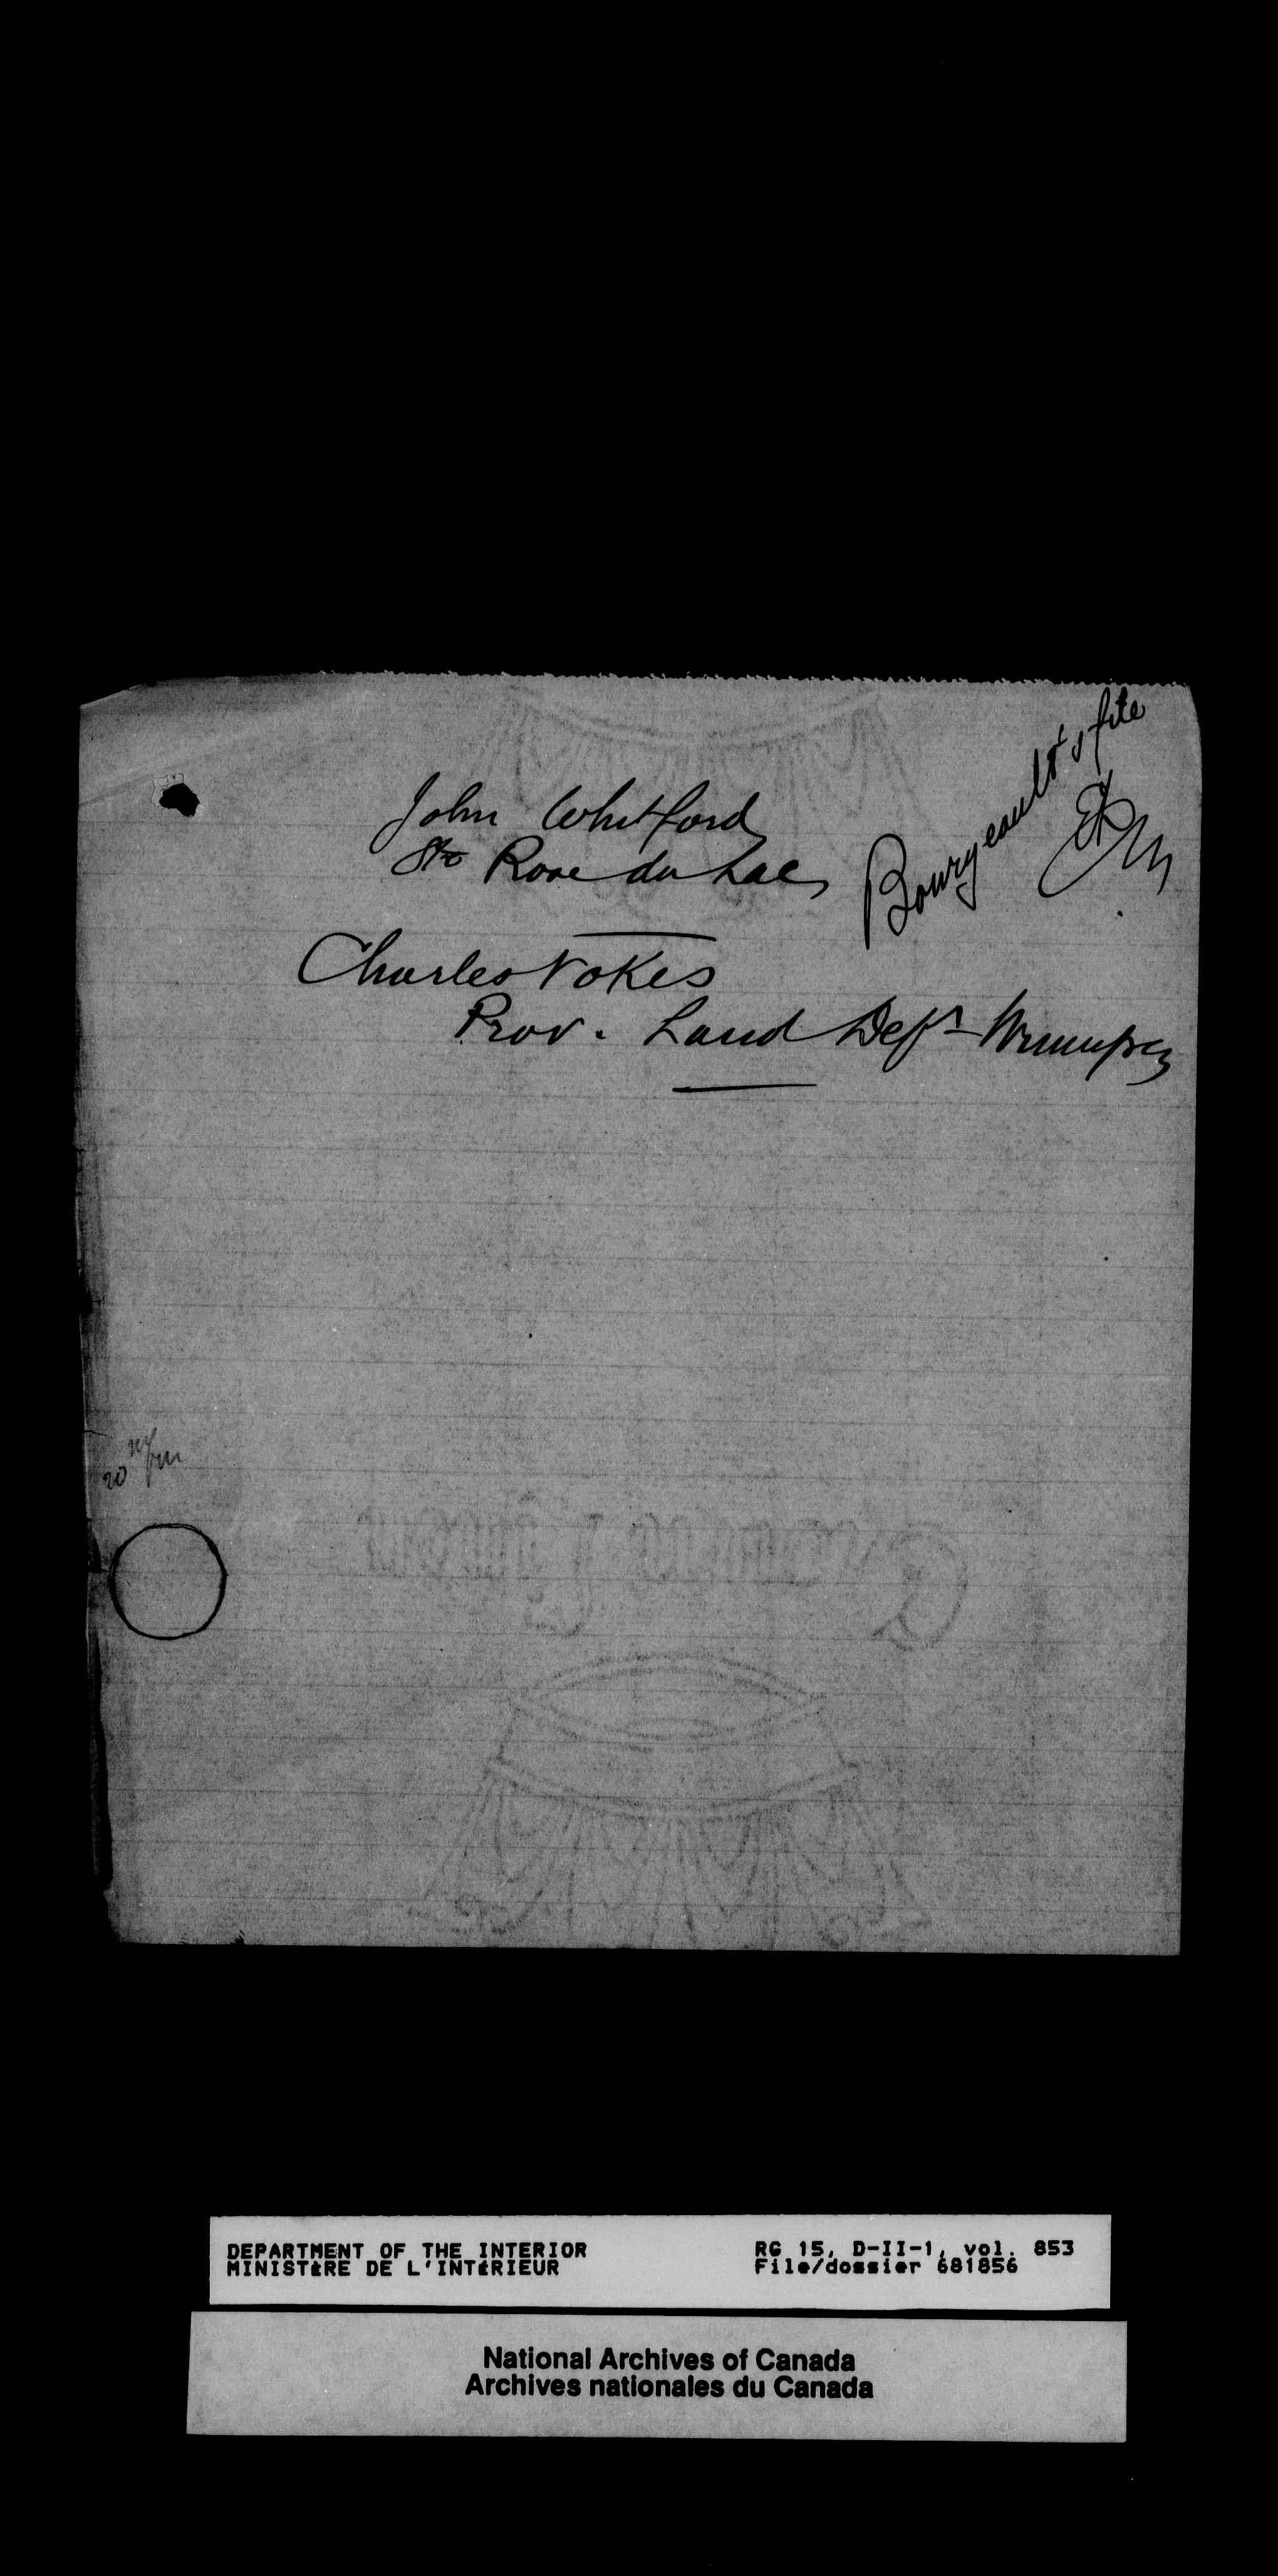 Bourgeault's file
John Whitford
Ste Rose du Lac
Charles Vokes
Prov. Land Dept Winnipeg
20
DEPARTMENT OF THE INTERIOR RG 15, D-II-1, vol. 853
MINISTÈRE DE L'INTÉRIEUR File/dossier 681856
National Archives of Canada
Archives nationales du Canada